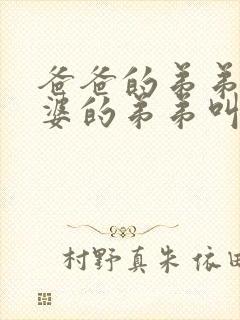 爸爸的弟弟
婆的弟弟叫
村野真朱 依田